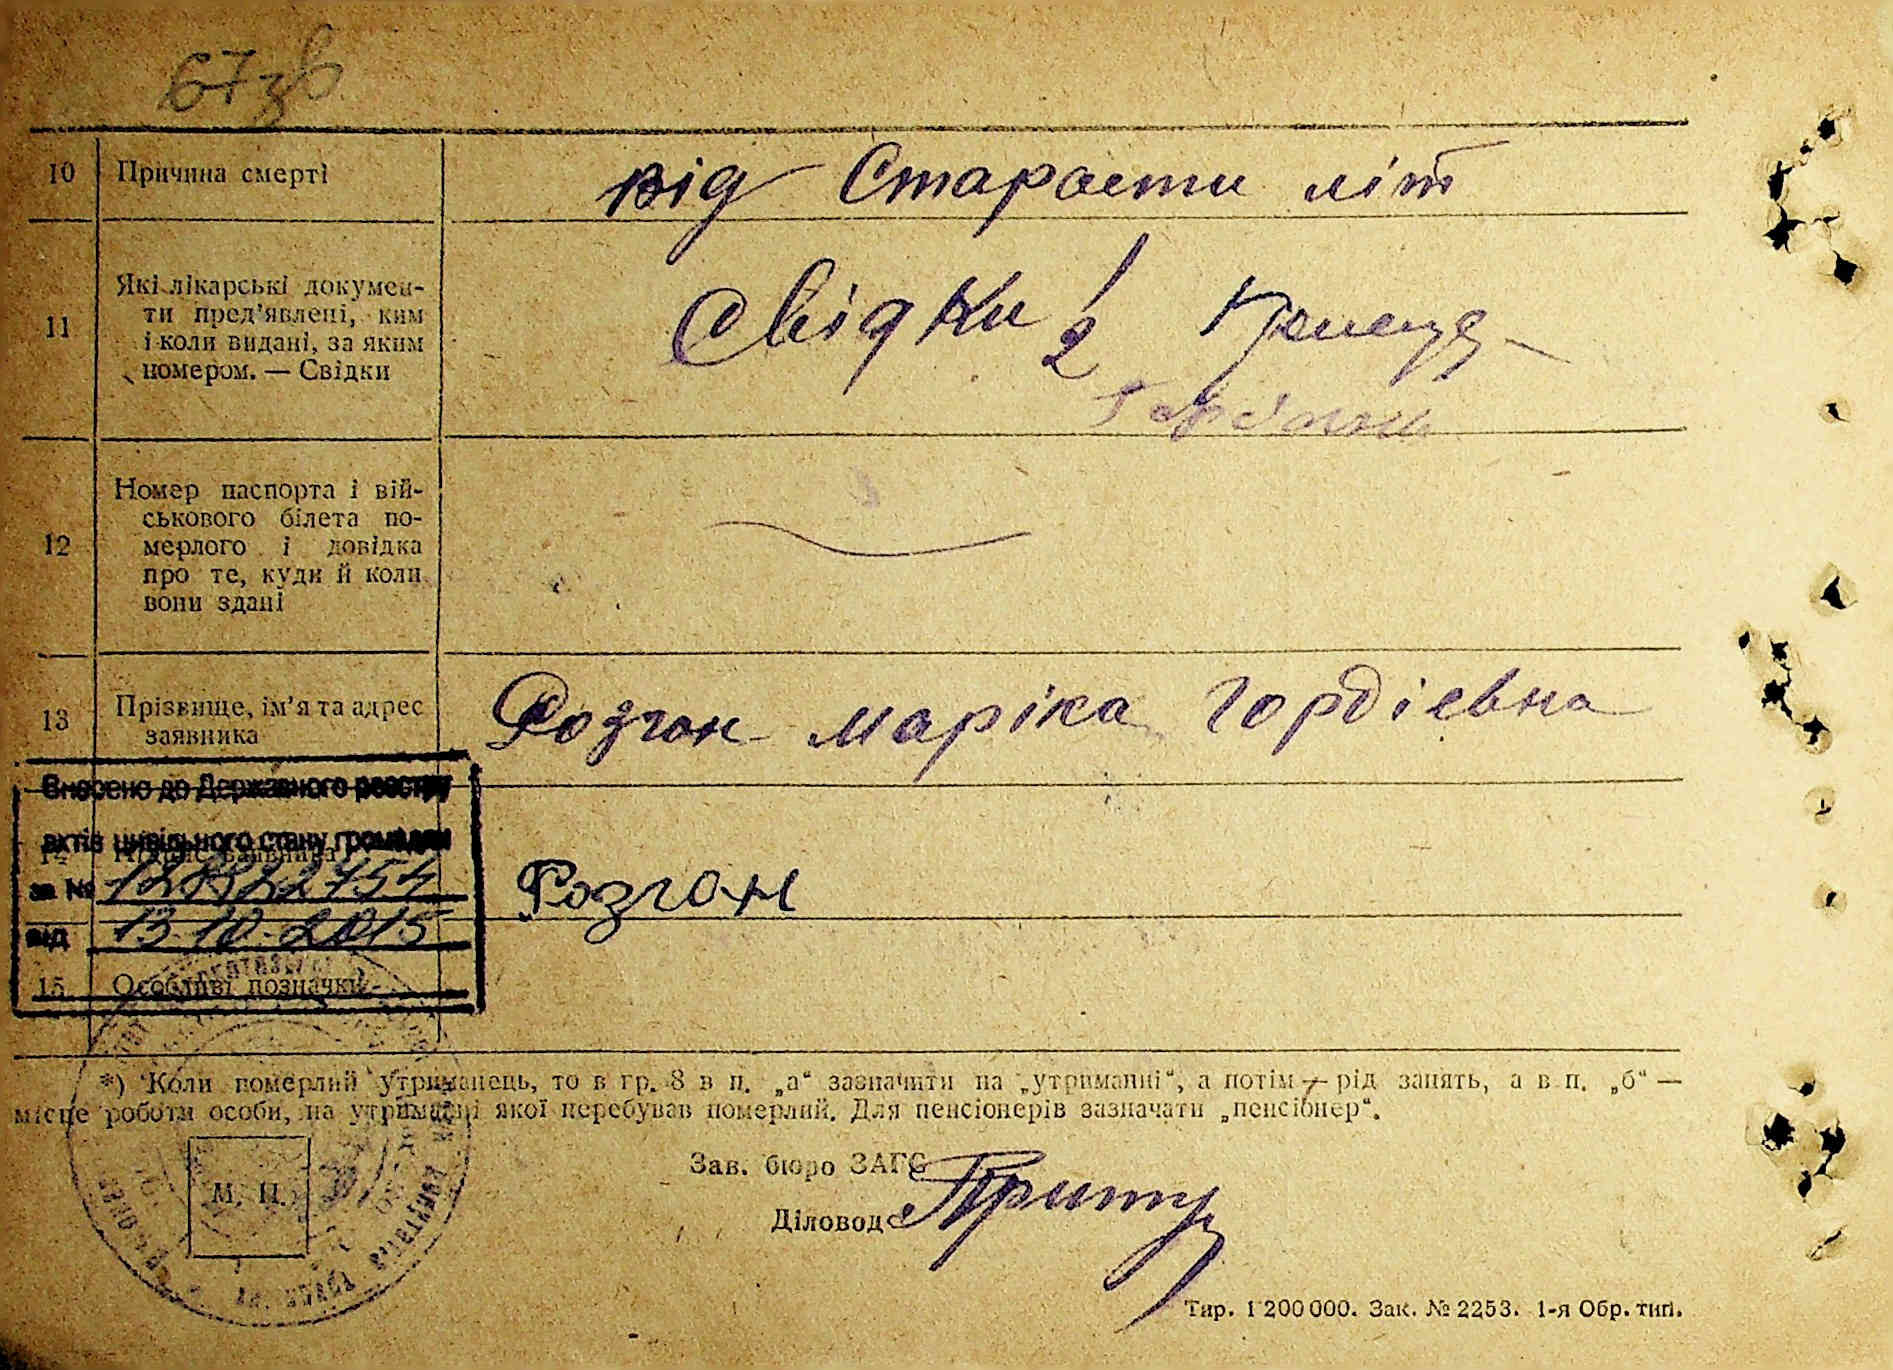 67зв
10 Причина смерті від Старости літ
11 Які лікарські докумен-
ти пред'явлені, ким
і коли видані, за яким
номером. — Свідки
Свідки
12 Номер паспорта і вій-
ськового білета по-
мерлого і довідка
про те, куди й коли
вони здані
13 Прізвище, ім'я та адрес
заявника
Розгон маріка Гордієвна
Внесено до Державного реєстру
актів цивільного стану громадян
14 Підпис заявника
за №
Розгон
від 13.10.2015
15 Особливі позначки
*) Коли померлий утриманець, то в гр. 8 в п. „а" зазначити на „утриманні", а потім — рід занять, а в п. „б" —
місце роботи особи, на утриманні якої перебував померлий. Для пенсіонерів зазначати „пенсіонер".
Зав. бюро ЗАГС
М. П.
Діловод
Тир. 1 200 000. Зак. № 2253. 1-я Обр. тип.